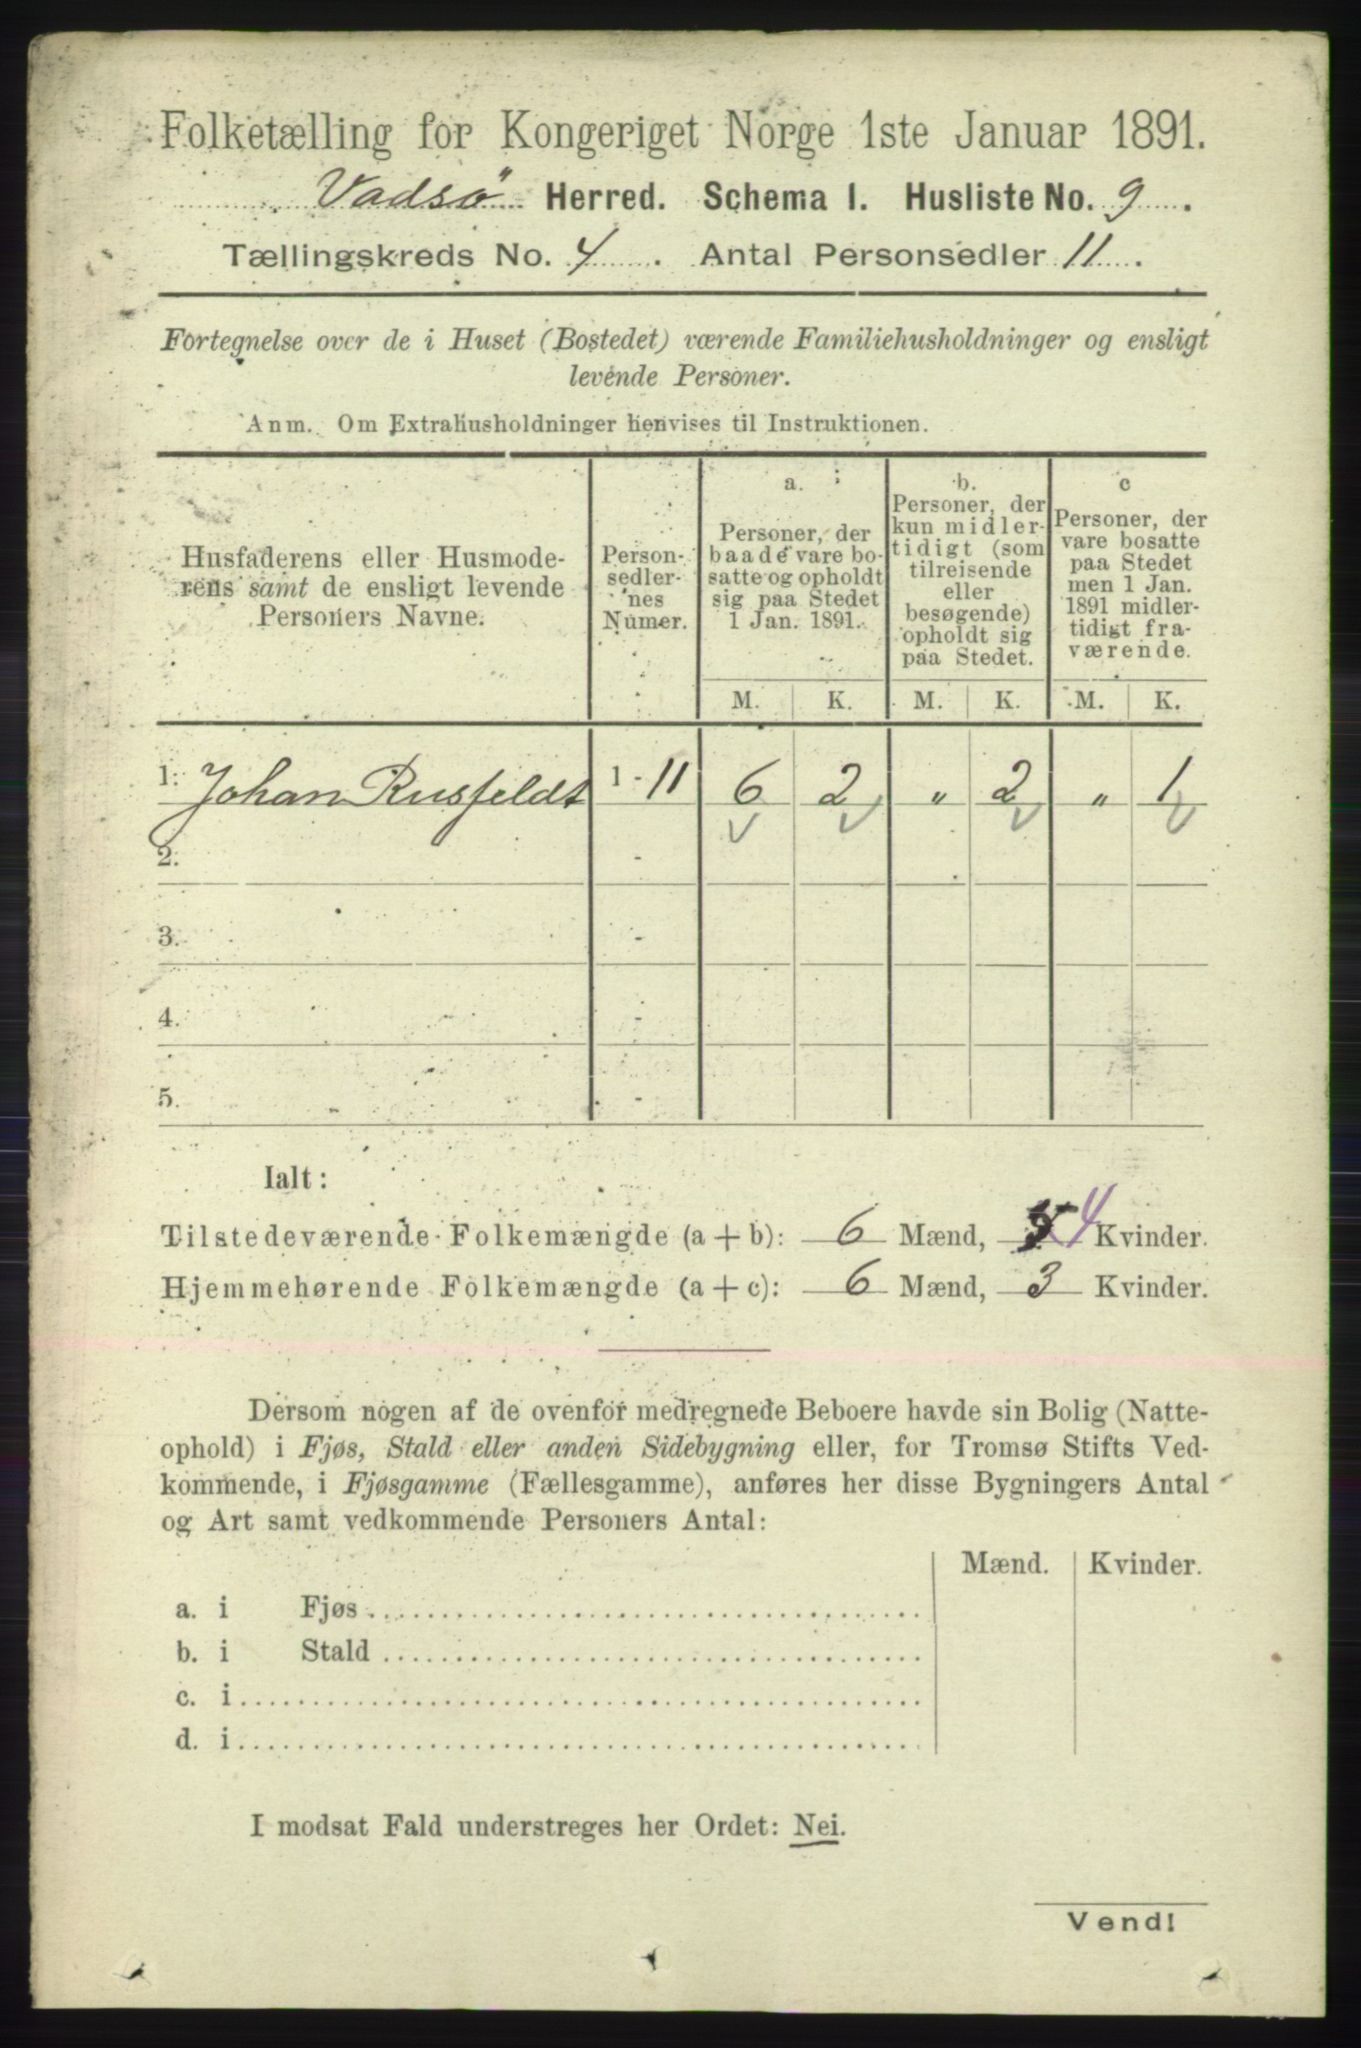 Folketælling for Kongeriget Norge 1ste Januar 1891.
Vadsø Herred. Schema I. Husliste No. 9.
Tællingskreds No. 4. Antal Personsedler 11.
Fortegnelse over de i Huset (Bostedet) værende Familiehusholdninger og ensligt
levende Personer.
Anm. Om Extrahusholdninger henvises til Instruktionen.
Husfaderens eller Husmode-
rens samt de ensligt levende
Personers Navne.
Person-
sedler-
nes
Numer.
a.
Personer, der
baade vare bo-
satte og opholdt
sig paa Stedet
1 Jan. 1891.
b.
Personer, der
kun midler-
tidigt (som
tilreisende
eller
besøgende)
opholdt sig
paa Stedet.
c
Personer, der
vare bosatte
paa Stedet
men 1 Jan.
1891 midler-
tidigt fra-
værende.
M. K. M. K. M. K.
1. Johan Rusfeldt 1 - 11 6 2 " 2 " 1
2. -
3. -
4. -
5. -
Ialt:
Tilstedeværende Folkemængde (a + b): 6 Mænd, 4 Kvinder.
Hjemmehørende Folkemængde (a + c): 6 Mænd, 3 Kvinder.
Dersom nogen af de ovenfor medregnede Beboere havde sin Bolig (Natte-
ophold) i Fjøs, Stald eller anden Sidebygning eller, for Tromsø Stifts Ved-
kommende, i Fjøsgamme (Fællesgamme), anføres her disse Bygningers Antal
og Art samt vedkommende Personers Antal:
Mænd. Kvinder.
a. i Fjøs
b. i Stald
c. i
d. i
I modsat Fald understreges her Ordet: Nei.
Vend!